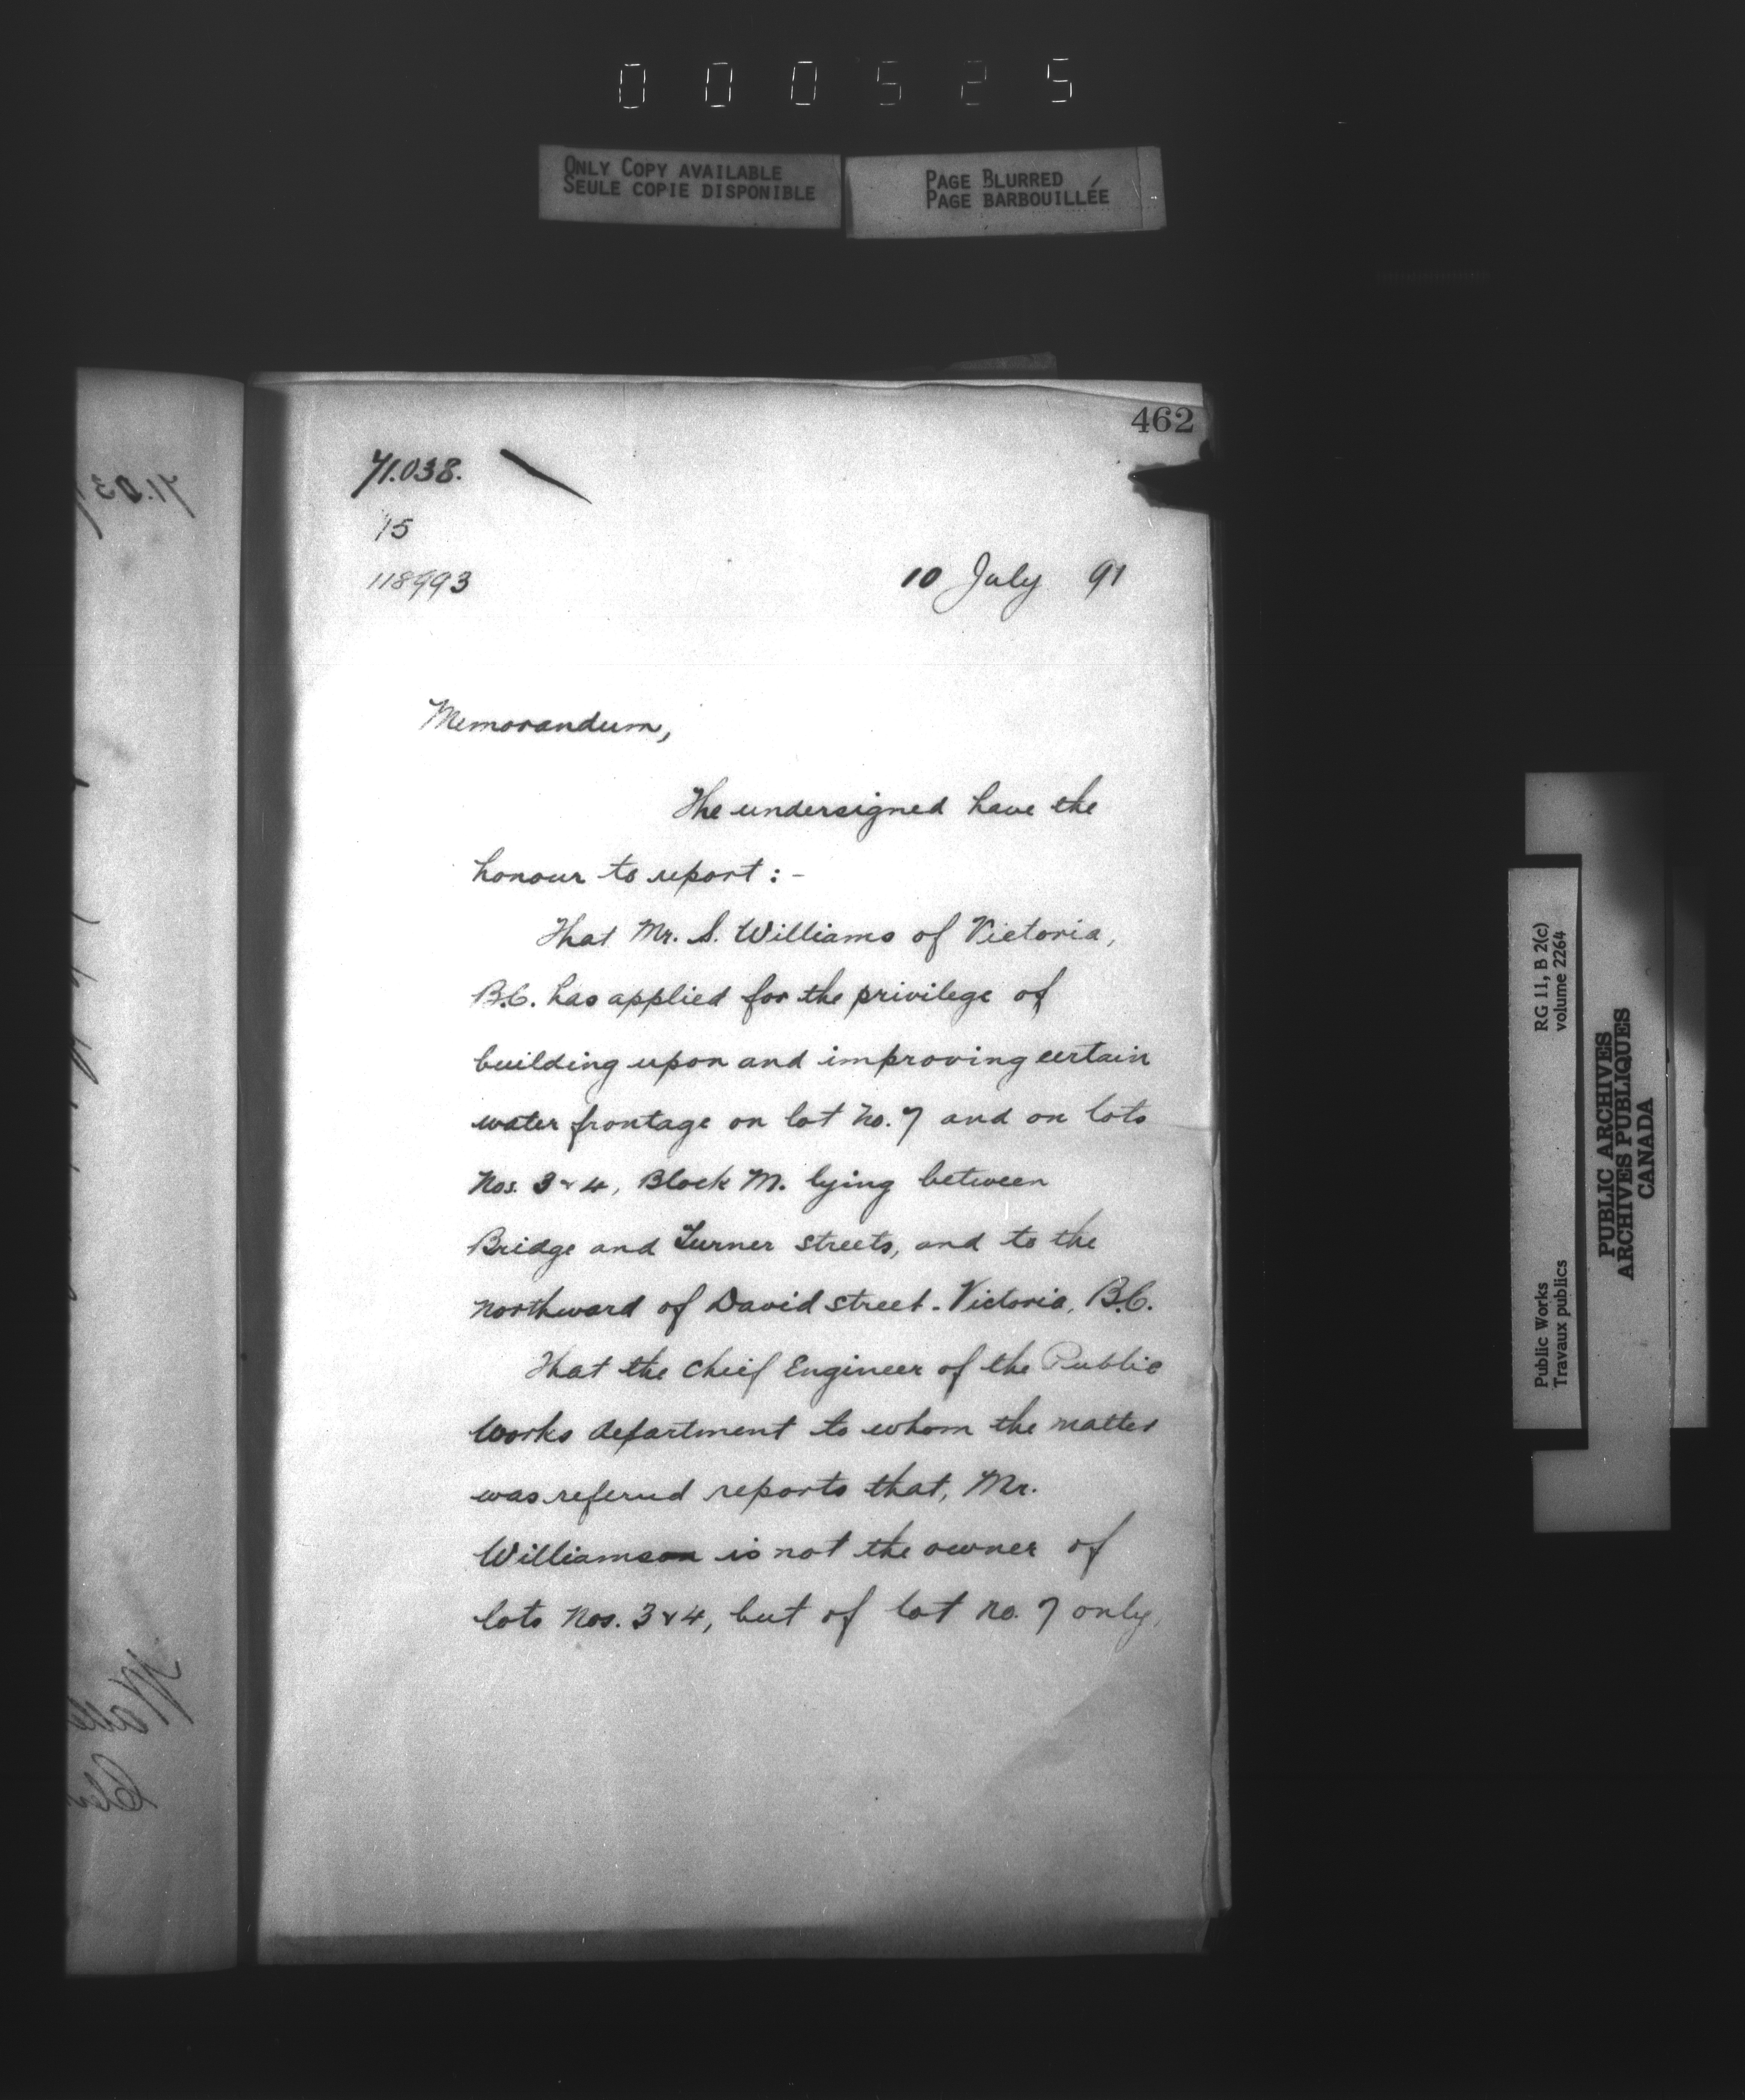 000525
ONLY COPY AVAILABLE
SEULE COPIE DISPONIBLE
PAGE BLURRED
PAGE BARBOUILLÉE
462
71.038.
15
118993
10 July 91
Memorandum,
The undersigned have the
honour to report:-
That Mr. S. Williams of Victoria,
B.C. has applied for the privilege of
building upon and improving certain
water frontage on lot No. 7 and on lots
Nos. 3 & 4, Block M. lying between
Bridge and Turner streets, and to the
northward of David street. Victoria, B.C.
That the Chief Engineer of the Public
Works department to whom the matter
was referred reports that, Mr.
Williamson is not the owner of
lots Nos. 3 & 4, but of lot no. 7 only,
RG 11, B 2(c)
volume 2264
Public Works
Travaux publics
PUBLIC ARCHIVES
ARCHIVES PUBLIQUES
CANADA